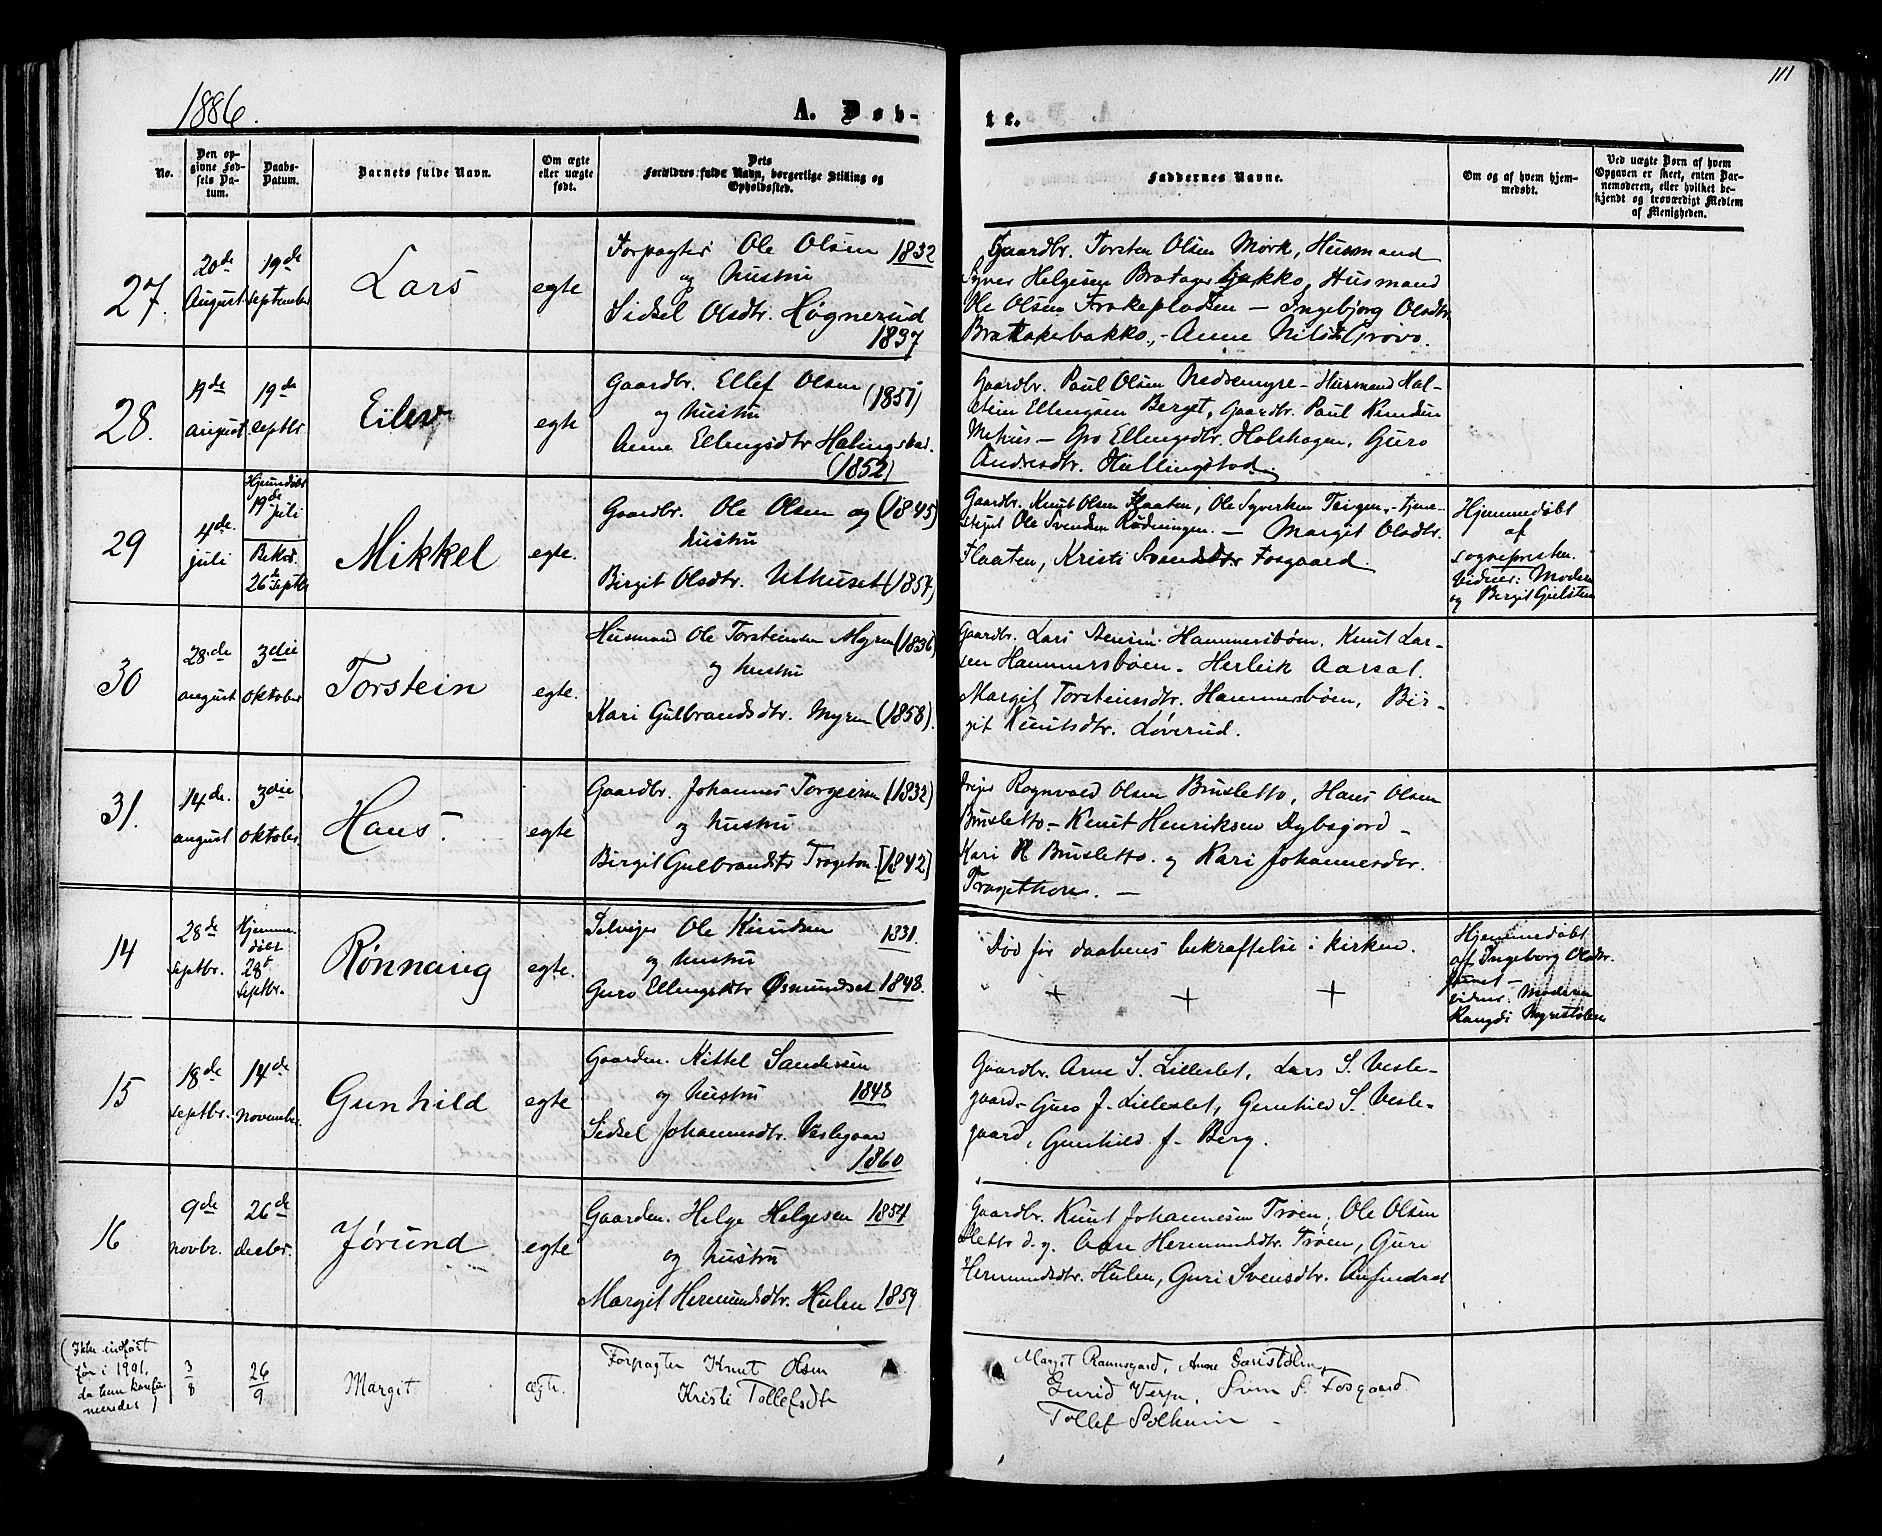 111
1886.
A. Døb-
te.
No.
Den op-
givne Fød-
sels Da-
tum.
Daabs-
Datum.
Barnets fulde Navn.
Om ægte
eller uægte
født.
Dets
Forældres fulde Navn, borgerlige Stilling og
Opholdssted.
Faddernes Navne.
Om og af hvem hjem-
medøbt.
Ved uægte Børn af hvem
Opgaven er skeet, enten Bar-
nemoderen, eller hvilket be-
kjendt og troværdigt Medlem
af Menigheden.
27.
20de
August
19de
September
Lars
egte
Forpagter Ole Olsen 1832
og hustru
Sidsel Olsdtr. Høgnerud
1837
Gaardbr. Torsten Olsen Mørk, Husmand
Helgesen Husmand
Ole Olsen Frokepladsen - Ingebjørg Olsdtr.
Brattakerbakko, - Anne Grøvo.
28.
19de
august
19de
septbr
Eilev
egte
Gaardbr. Ellef Olsen (1851)
og hustru
Anne Ellengsdtr
(1852)
Gaardbr. Paul Olsen Nedremyre - Husmand Hal-
stein Ellengsen Berget, Gaardbr. Paul
Mehus - Gro Ellengsdtr. Holshagen, Guro
Andresdtr. Hallingstad.
29
4de
juli
Hjemdøbt
19de
Juli
26de Septbr
Mikkel
egte.
Gaardbr. Ole Olsen og (1845)
hustru
Birgit Olsdtr. Uthuset (1857)
Gaardbr. Knut Olsen Flaaten, Ole Syversen Teigen, - tjene-
Ole Svendsen Rødningen. - Margit Olsdtr.
Flaaten, Kristi Svensdtr Fosgaard.
Hjemmedøbt
af
sognepresten.
Vidner: Moderen
og Birgit
30
28de
august
3die
oktober
Torstein
egte.
Husmand Ole Torsteinsen Myren (1836)
og hustru
Kari Gulbrandsdtr. Myren (1858).
Gaardbr. Lars Hammersbøen, Knut Lar-
sen Hammersbøen - Herleik Aarsat.
Margit Torsteinsdtr. Hammersbøen, Bir-
git Knutsdtr. Løverud.
31.
14de.
august
3die
oktober
Hans.
egte
Gaardbr. Johannes Torgeirsen (1832)
og hustru
Birgit Gulbrandsdtr Trageton. [1842]
Ragnvald Olsen Brusletto, Hans Olsen
Brusletto - Knut Henriksen Dybsjord -
Kari N Brusletto. og Kari Johannesdtr.
Tragethon. -
14
28de
septbr.
Hjemme-
døbt
28de
Septbr.
Rønnaug
egte.
Selveier Ole Knudsen 1831.
og hustru
Guro Ellengsdtr Øsmundset 1848.
Død før daabens bekræftelse i kirken.
+ + +
Hjemmedøbt
af Ingeborg Olsdtr.
vidner. Moderen
Rangdi
15
18de
septbr.
14de
november
Gunhild
egte
Gaarden. Kittel Sandersen
og hustru 1848
Sidsel Johannesdtr. Veslegaard
1860
Gaardbr. Arne S. Lilleslet, Lars S. Vesle-
gaard - Guro J. Lilleslet, Gunhild S. Vesle-
gaard, Gunhild J. Berg.
16
9de
novbr.
26de
decbr.
Jørund
egte
Gaarden. Helge Helgesen 1854
og hustru
Margit Hermundsdtr. Hulen 1859
Gaardbr. Knut Johannesen Trøen, Ole Olsen
Sletto d. y. Aase Hermundsdtr. Trøen, Guri
Hermundsdtr. Hulen, Guri Svensdtr.
(Ikke indført
før i 1901,
da hun konfir-
meredes)
3/8
26/9
Margit
ægte.
Forpagter Knut Olsen
Kristi Tollefsdtr
Margit Anne
Gurid Verpe, Sven S. Fosgaard
Tollef Solheim -